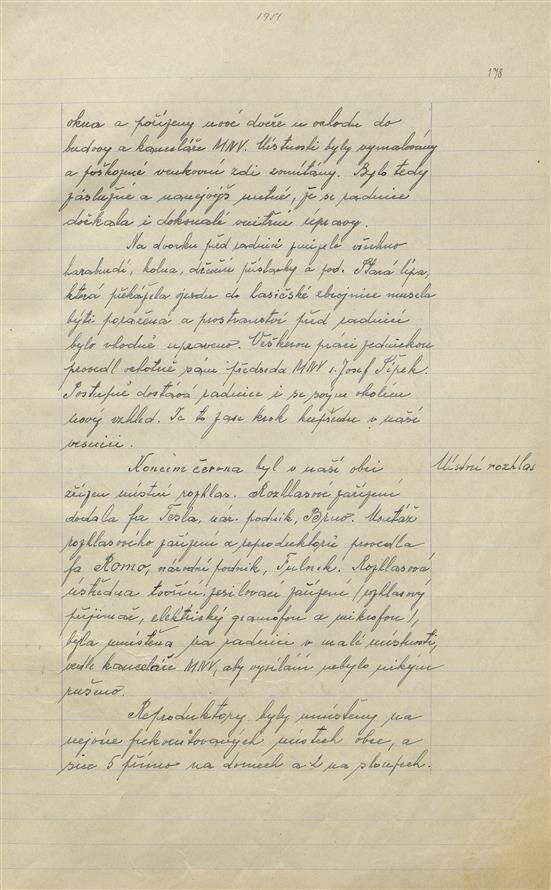 1951
178
okna a pořízeny nové dveře u vchodu do
budovy a kanceláře MNV. Místnosti byly vymalovány
a poškozené venkovní zdi omítány. Bylo tedy
záslužné a nanejvýš nutné, že se radnice
dočkala i dokonalé vnitřní úpravy.
Na dvorku před radnicí zmizelo všechno
haraburdí, kolna, dřevěné přístavky a pod. Stará lípa,
která překážela vjezdu do hasičské zbrojnice musela
býti poražena a prostranství před radnicí
bylo vhodně upraveno. Veškerou práci zedničkou
provedl ochotně sám předseda MNV s. Josef Šípek.
Postupně dostává radnice i se svým okolím
nový vzhled. Je to zase krok kupředu v naší
vesnici.
Koncem června byl v naší obci
Místní rozhlas
zřízen místní rozhlas. Rozhlasové zařízení
dodala fa Tesla, nár. podnik, Brno. Montáž
rozhlasového zařízení a reproduktorů provedla
fa Romo, národní podnik, Fulnek. Rozhlasová
ústředna tvořící zesilovací zařízení (rozhlasový
přijimač, elektrický gramofon a mikrofon),
byla umístěna na radnici v malé místnosti,
vedle kanceláře MNV, aby vysílání nebylo nikým
rušeno.
Reproduktory byly umístěny na
nejvíce frekventovaných místech obce, a
sice 5 přímo na domech a 2 na sloupech.